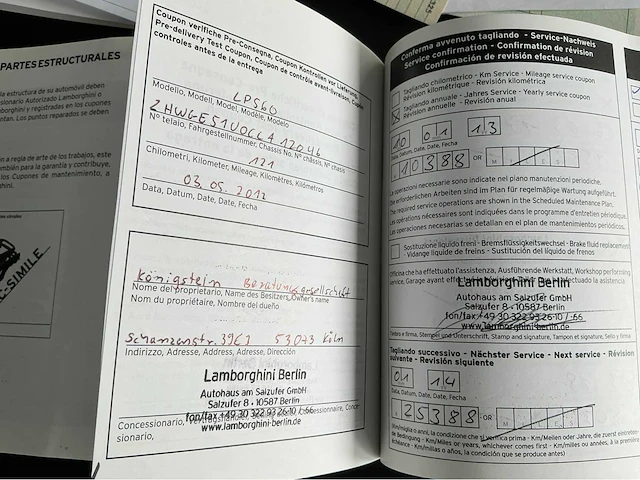 PARTES ESTRUCTURALES
ta estructura de su automóvil deben
sionario Autorizado Lamborghini o
mborghini y registradas en los cupones
antan. Los puntos reparados se deben
en a regla de arte de los trabajos, este
también para la garantía y contribuye,
e los Cupones de mantenimiento, a
ghini.
C-SIMILE
Coupon verifiche Pre-Consegna, Coupon Kontrollen vor Lieferung,
Pre-delivery Test Coupon, Coupon de contrôle avant-livraison, Cupón
controles antes de la entrega
LP560
Modello, Modell, Model, Modèle, Modelo
ZHWGE51U0CLA12046
N° telaio, Fahrgestellnummer, Chassis No, N° châssis, N° chasis
121
Chilometri, Kilometer, Mileage, Kilomètres, Kilómetros
03.05.2012
Data, Datum, Date, Date, Fecha
Königstein Beratungsgesellschaft
Nome del proprietario, Name des Besitzers, Owner's name
Nom du propriétaire, Nombre del dueño
Schanzenstr. 39C1 53073 Köln
Indirizzo, Adresse, Address, Adresse, Dirección
Lamborghini Berlin
Autohaus am Salzufer GmbH
Salzufer 8 • 10587 Berlin
fon/fax +49 30 322 93 26-10 / -66
www.lamborghini-berlin.de
Concessionario,
sionario,
Conferma avvenuto tagliando - Service-Nachweis
Service confirmation - Confirmation de révision
Confirmación de revisión efectuada
Tagliando chilometrico - Km Service - Mileage service coupon
Révision kilométrique - Revisión kilométrica
Tagliando annuale - Jahres Service - Yearly service coupon
Révision annuelle - Revisión anual
10 01 13
Data, Datum, Date, Date, Fecha
10388 OR M I L E S
Le operazioni necessarie sono indicate nel piano manutenzioni periodiche.
Die erforderlichen Arbeiten sind im Plan für regelmäßige Wartung aufgeführt.
The required service operations are shown in the Scheduled Maintenance Plan.
Les opérations nécessaires sont indiquées dans le programme d'entretien périodique.
Las operaciones necesarias se detallan en el plan de mantenimiento periódicos.
Sostituzione liquido freni - Bremsflüssigkeitswechsel - Brake fluid replacement
- Vidange liquide de freins - Sustitución del líquido de frenos
Officina che ha effettuato l'assistenza, Ausführende Werkstatt, Workshop performing
service, Garage ayant effectué
Lamborghini Berlin
Autohaus am Salzufer GmbH
Salzufer 8 • 10587 Berlin
fon/fax +49 30 322 93 26-10 / -66
www.lamborghini-berlin.de
Timbro e firma, Stempel und Unterschrift, Stamp and signature, Tampon et signature, Sello y firma
Tagliando successivo - Nächster Service - Next service - Révision
suivante - Revisión siguiente
01 14
Data, Datum, Date, Date, Fecha
25388 OR M I L E S
(Km/miglia o anni, la condizione che si verifica prima - Km/Meilen oder Jahre, die zuerst eintretende
Bedingung - Km/Miles or years, whichever comes first - Km/milles ou années, à la première
échéance - Km/millas o años, la condición que se produce antes)